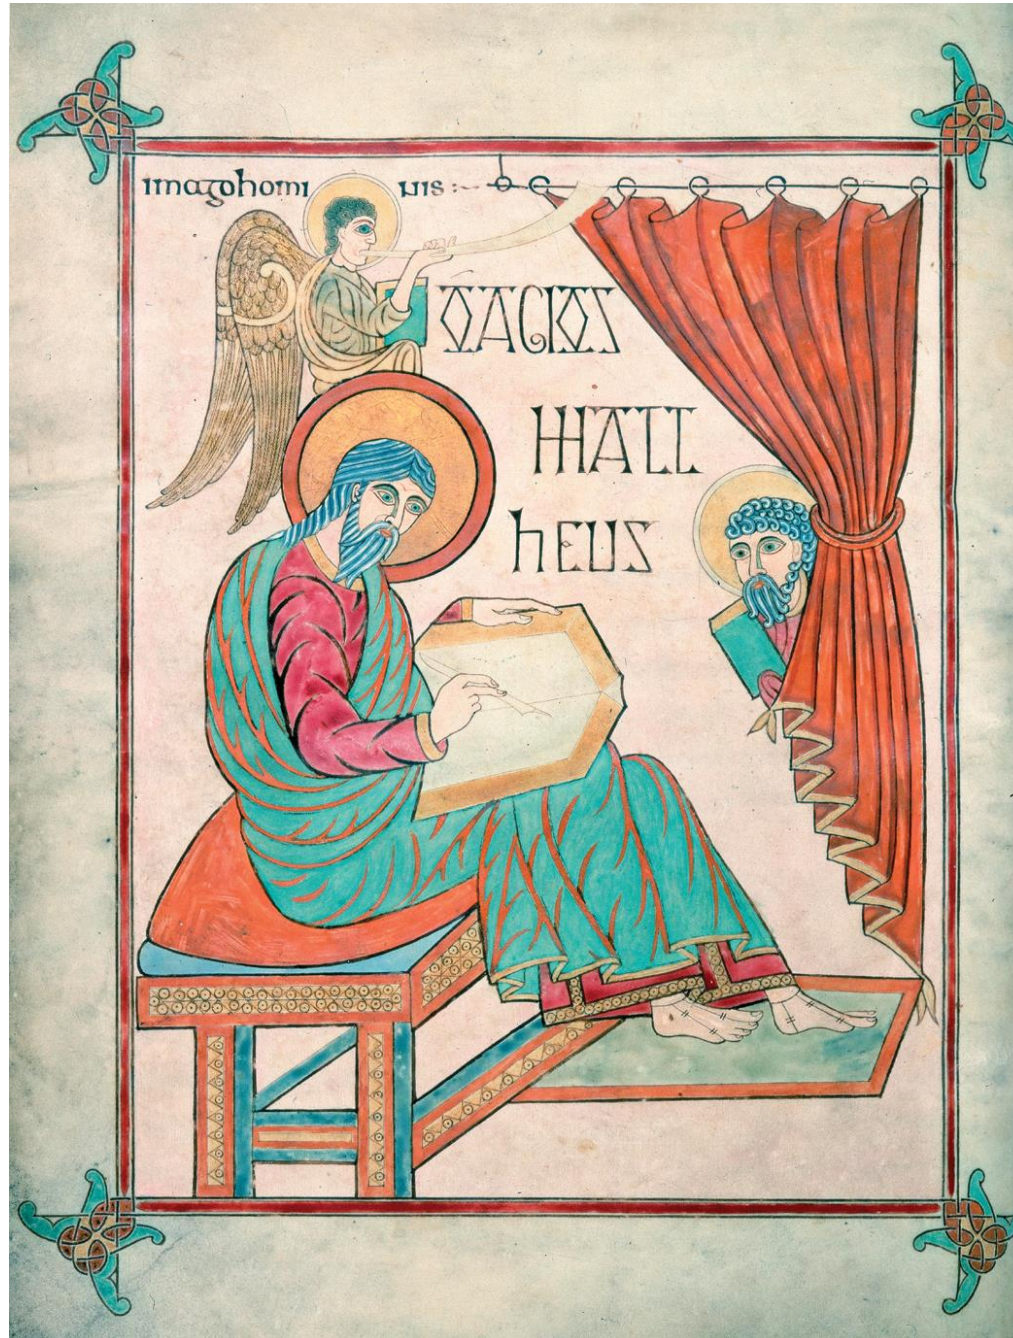 imagohomi nis :~
OAGIOS
MATT
hEUS